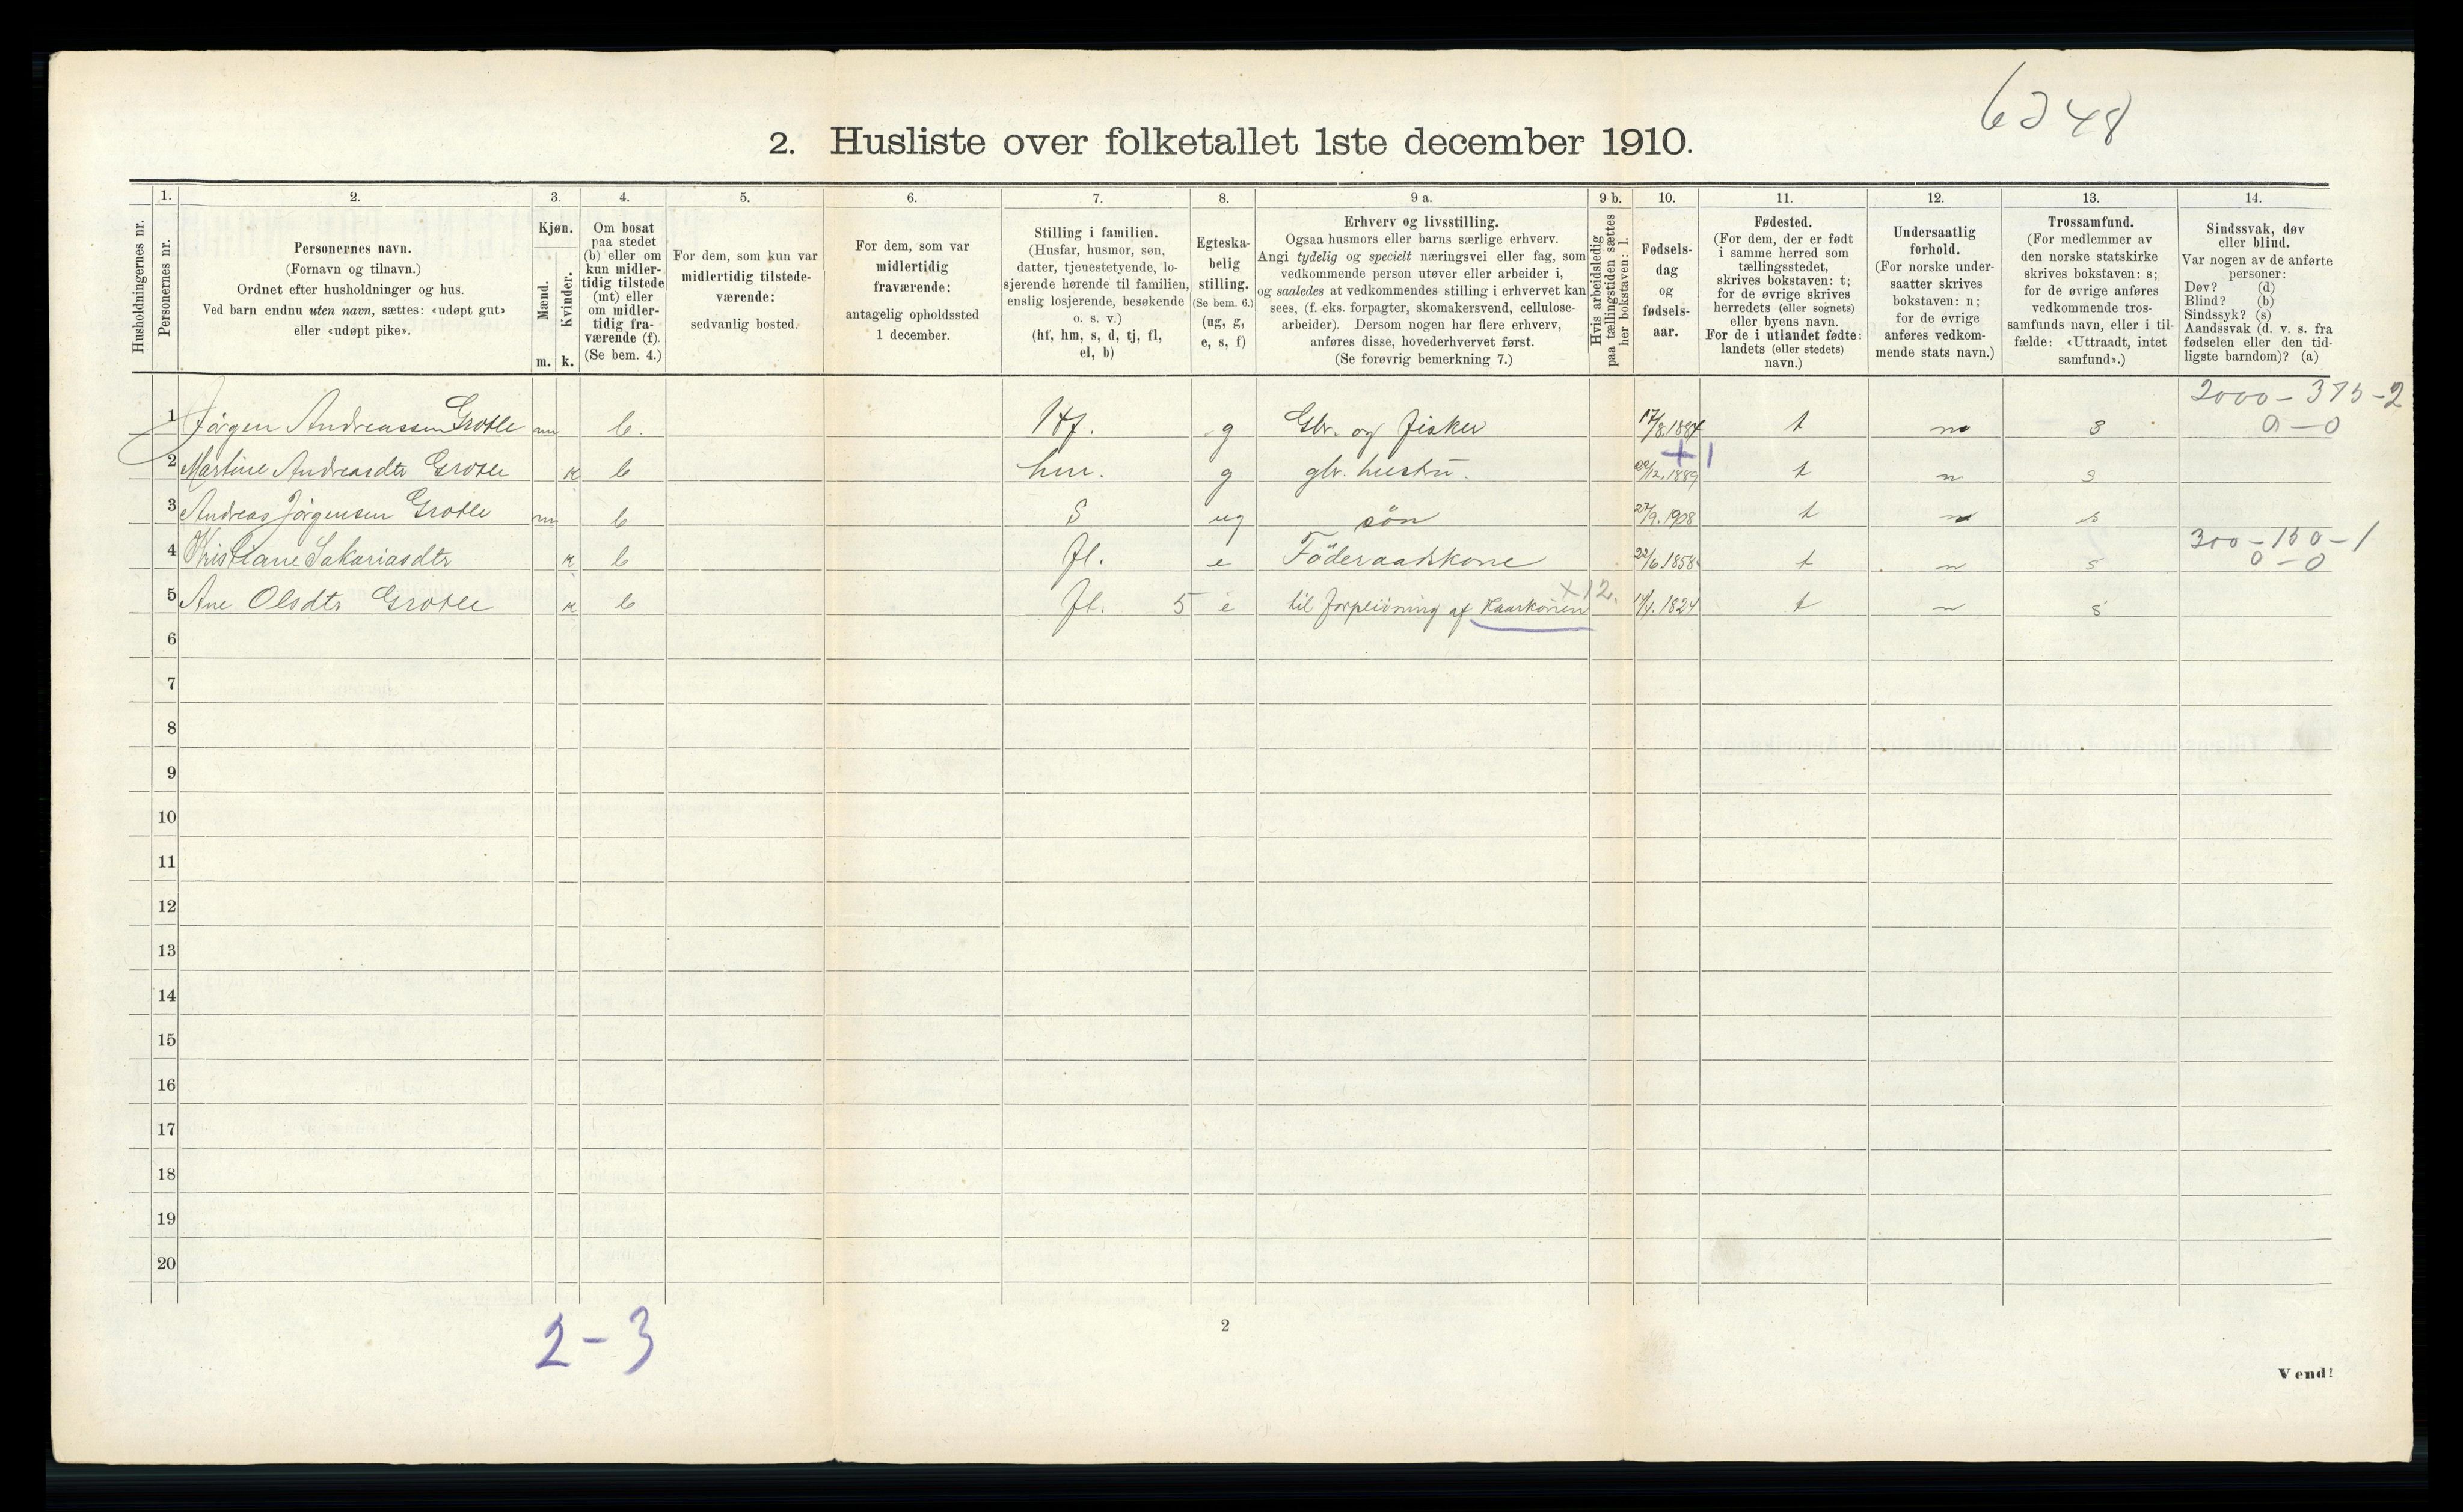 6248
2. Husliste over folketallet 1ste december 1910.
1. 2. 3. 4. 5. 6. 7. 8. 9 a. 9 b. 10. 11. 12. 13. 14.
Husholdningernes nr.
Personernes nr.
Personernes navn.
(Fornavn og tilnavn.)
Ordnet efter husholdninger og hus.
Ved barn endnu uten navn, sættes: «udøpt gut»
eller «udøpt pike».
Kjøn.
Mænd.
m.
Kvinder.
k.
Om bosat
paa stedet
(b) eller om
kun midler-
tidig tilstede
(mt) eller
om midler-
tidig fra-
værende (f).
(Se bem. 4.)
For dem, som kun var
midlertidig tilstede-
værende:
sedvanlig bosted.
For dem, som var
midlertidig
fraværende:
antagelig opholdssted
1 december.
Stilling i familien.
(Husfar, husmor, søn,
datter, tjenestetyende, lo-
sjerende hørende til familien,
enslig losjerende, besøkende
o. s. v.)
(hf, hm, s, d, tj, fl,
el, b)
Egteska-
belig
stilling.
(Se bem. 6.)
(ug, g,
e, s, f)
Erhverv og livsstilling.
Ogsaa husmors eller barns særlige erhverv.
Angi tydelig og specielt næringsvei eller fag, som
vedkommende person utøver eller arbeider i,
og saaledes at vedkommendes stilling i erhvervet kan
sees, (f. eks. forpagter, skomakersvend, cellulose-
arbeider). Dersom nogen har flere erhverv,
anføres disse, hovederhvervet først.
(Se forøvrig bemerkning 7.)
Hvis arbeidsledig
paa tællingstiden sættes
her bokstaven: l.
Fødsels-
dag
og
fødsels-
aar.
Fødested.
(For dem, der er født
i samme herred som
tællingsstedet,
skrives bokstaven: t;
for de øvrige skrives
herredets (eller sognets)
eller byens navn.
For de i utlandet fødte:
landets (eller stedets)
navn.)
Undersaatlig
forhold.
(For norske under-
saatter skrives
bokstaven: n;
for de øvrige
anføres vedkom-
mende stats navn.)
Trossamfund.
(For medlemmer av
den norske statskirke
skrives bokstaven: s;
for de øvrige anføres
vedkommende tros-
samfunds navn, eller i til-
fælde: «Uttraadt, intet
samfund».)
Sindssvak, døv
eller blind.
Var nogen av de anførte
personer:
Døv? (d)
Blind? (b)
Sindssyk? (s)
Aandssvak (d. v. s. fra
fødselen eller den tid-
ligste barndom)? (a)
2000 - 375 - 2
1 Jörgen Andreassen Grotle m b. Hf. g Gbr. og fisker 17/8.1884 t n s 0 - 0
+1
2 Martine Andreasdtr Grotle k b hm. g gbr. hustru. 20/12.1889 t n s
3 Andreas Jörgensen Grotle m b S ug sön 27/9.1908 t n s
300 - 150 - 1
4 Kristiane Sakariasdtr k b fl. e Föderaadskone 22/6.1858 t n s 0 - 0
x12.
5 Ane Olsdtr Grotle k b fl. 5 e til forpleining af Kaarkonen 14/4.1824 t n s
6
7
8
9
10
11
12
13
14
15
16
17
18
19
20
2 - 3
2
Vend!